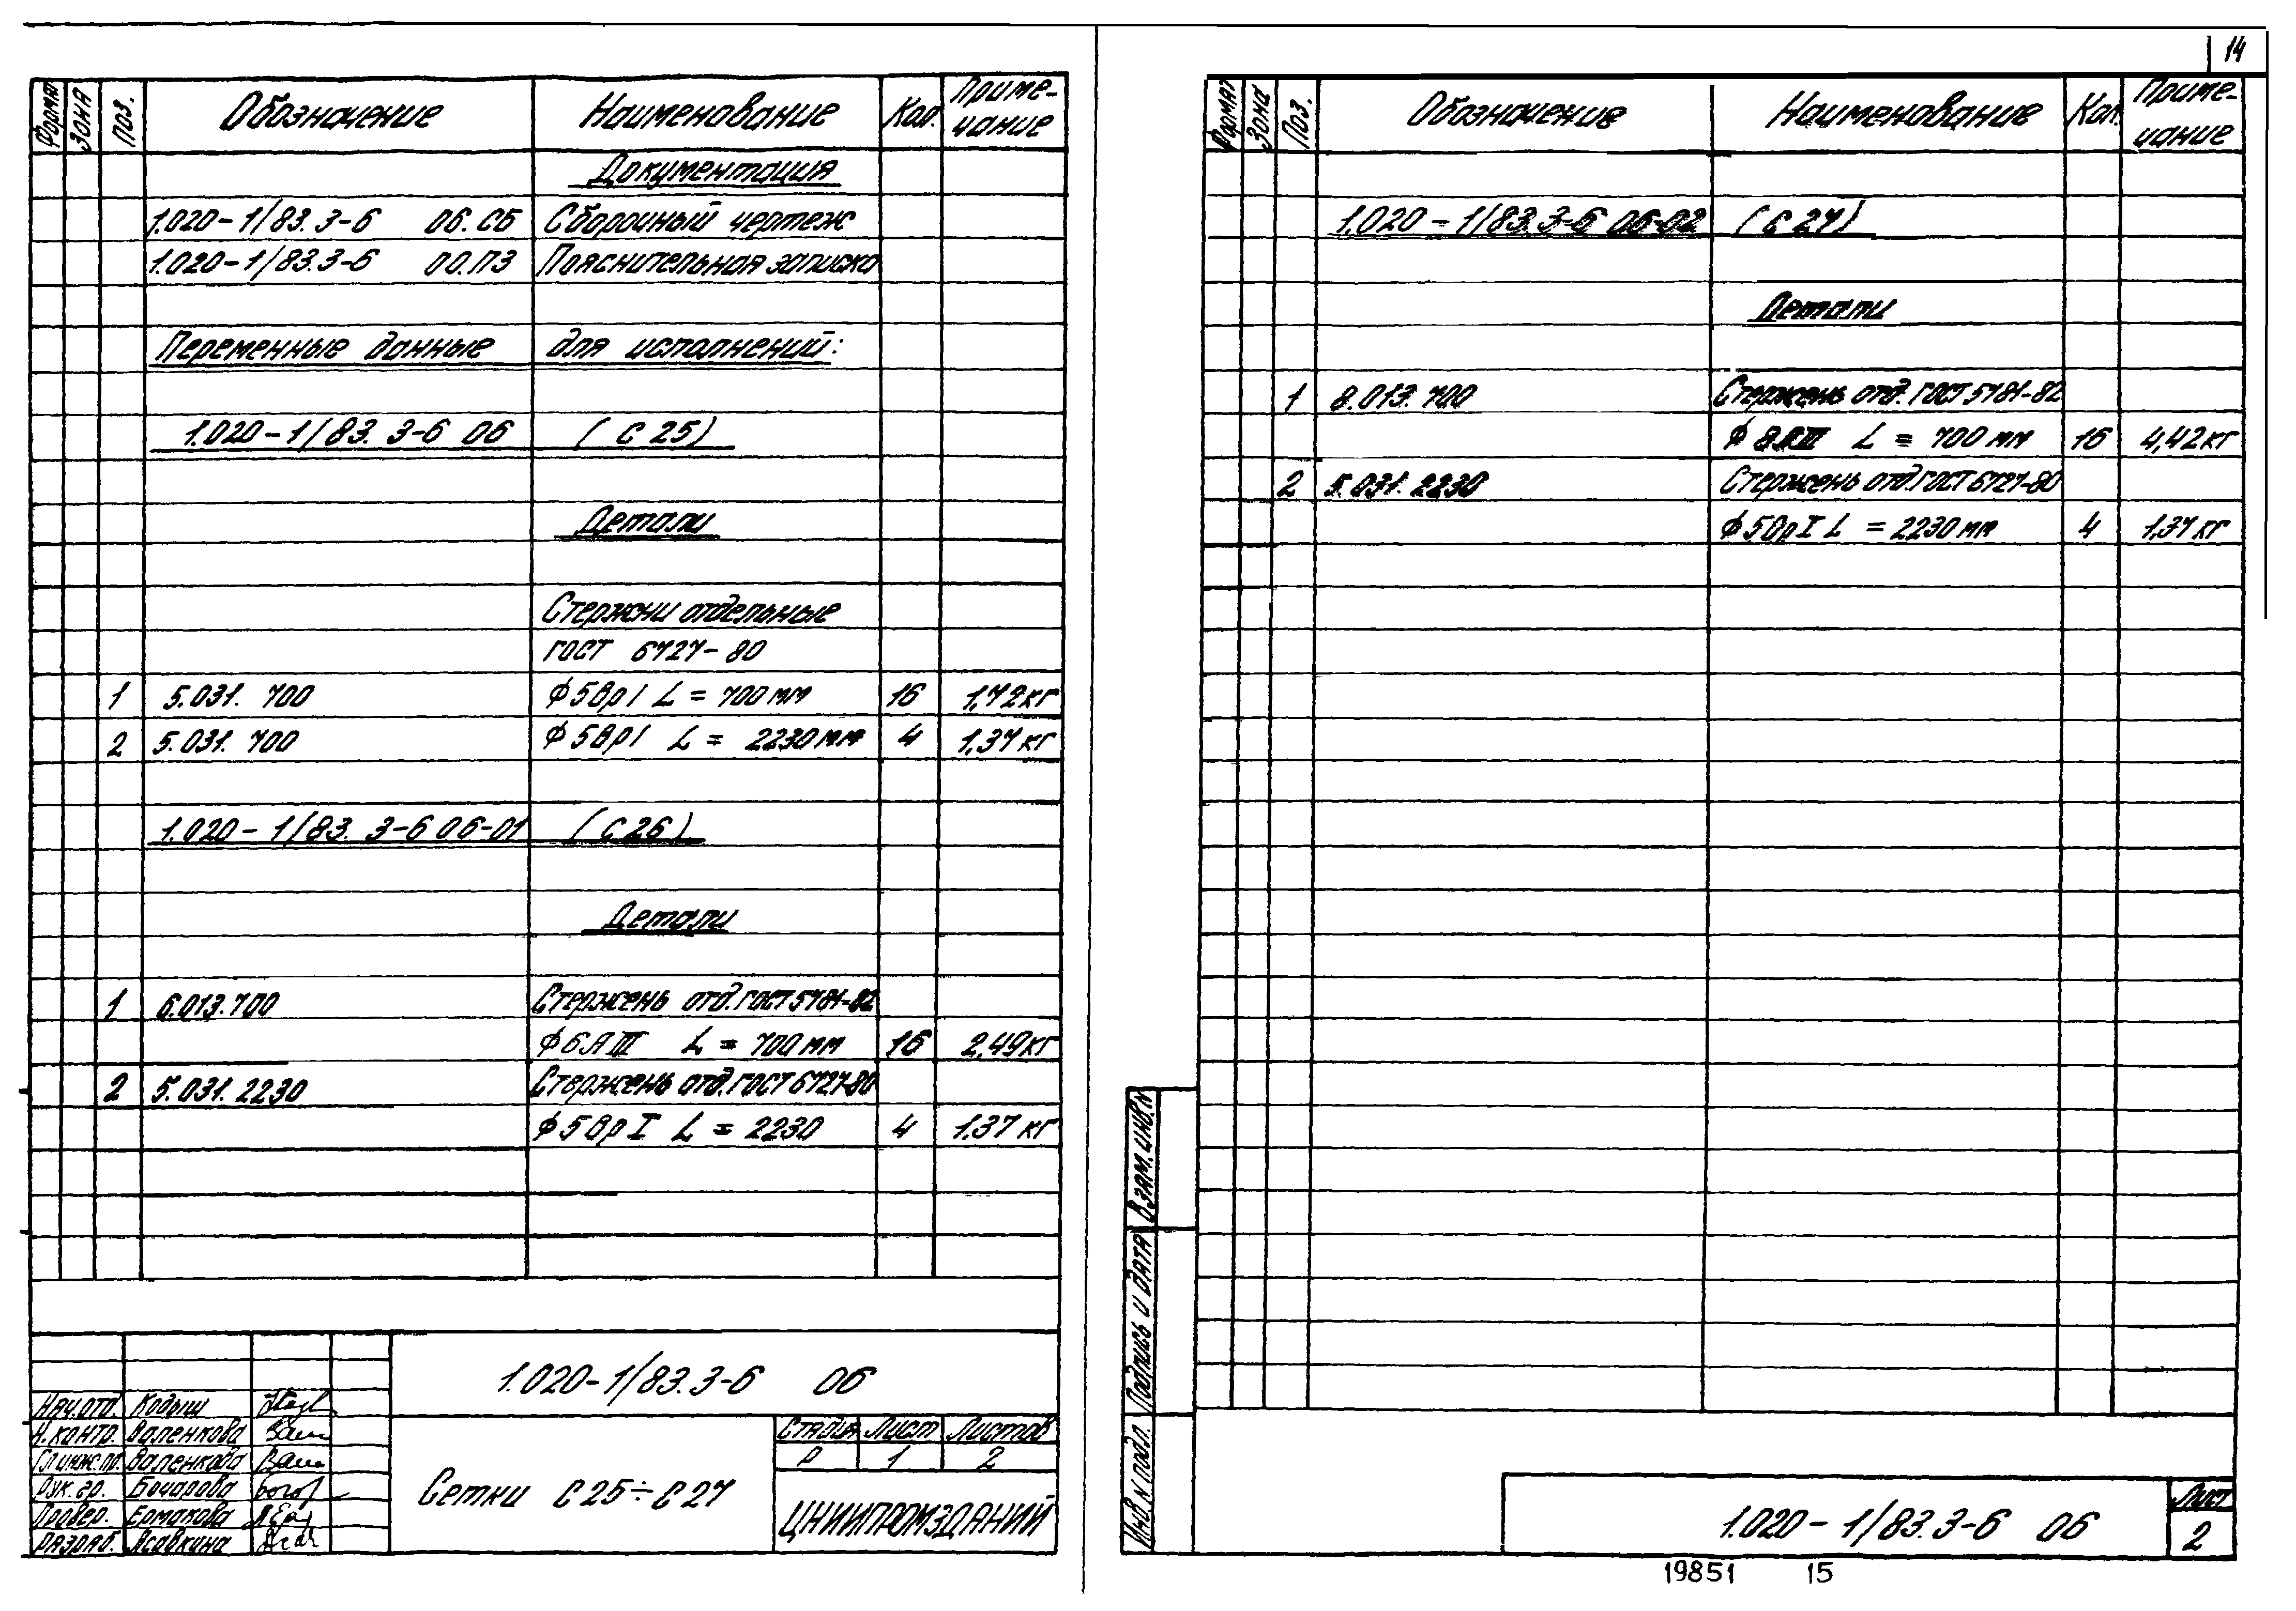 14
Формат Зона Поз. Обозначение Наименование Кол. Приме-
чание
Документация
1.020-1/83.3-6 06.СБ Сборочный чертеж
1.020-1/83.3-6 00.ПЗ Пояснительная записка
Переменные данные для исполнений:
1.020-1/83. 3-6 06 (С25)
Детали
Стержни отдельные
ГОСТ 6727-80
1 5.031. 700 ф5ВрI L = 700 мм 16 1,72 кг
2 5.031. 700 ф5ВрI L = 2230 мм 4 1,37 кг
1.020-1/83. 3-6 06-01 (С26)
Детали
1 6.013.700 Стержень отд. ГОСТ 5781-82
ф6АIII L = 700 мм 16 2,49 кг
2 5.031.2230 Стержень отд. ГОСТ 6727-80
ф5ВрI L = 2230 4 1,37 кг
1.020-1/83.3-6 06
Нач.отд. Кодыш
Н.контр. Валенкова
Гл.инж.пр. Валенкова
Рук.гр. Бочарова
Провер. Ермакова
Разраб. Асавкина
Сетки С25÷С27
Стадия Лист Листов
Р 1 2
ЦНИИПРОМЗДАНИЙ
Формат Зона Поз. Обозначение Наименование Кол. Приме-
чание
1.020-1/83.3-6 06-02 (С27)
Детали
1 8.013.700 Стержень отд. ГОСТ 5781-82
ф8АIII L = 700 мм 16 4,42 кг
2 5.031.2230 Стержень отд. ГОСТ 6727-80
ф5ВрI L = 2230 мм 4 1,37 кг
Взам. инв. N
Подпись и дата
Инв. N подл.
1.020-1/83.3-6 06
Лист
2
19851 15